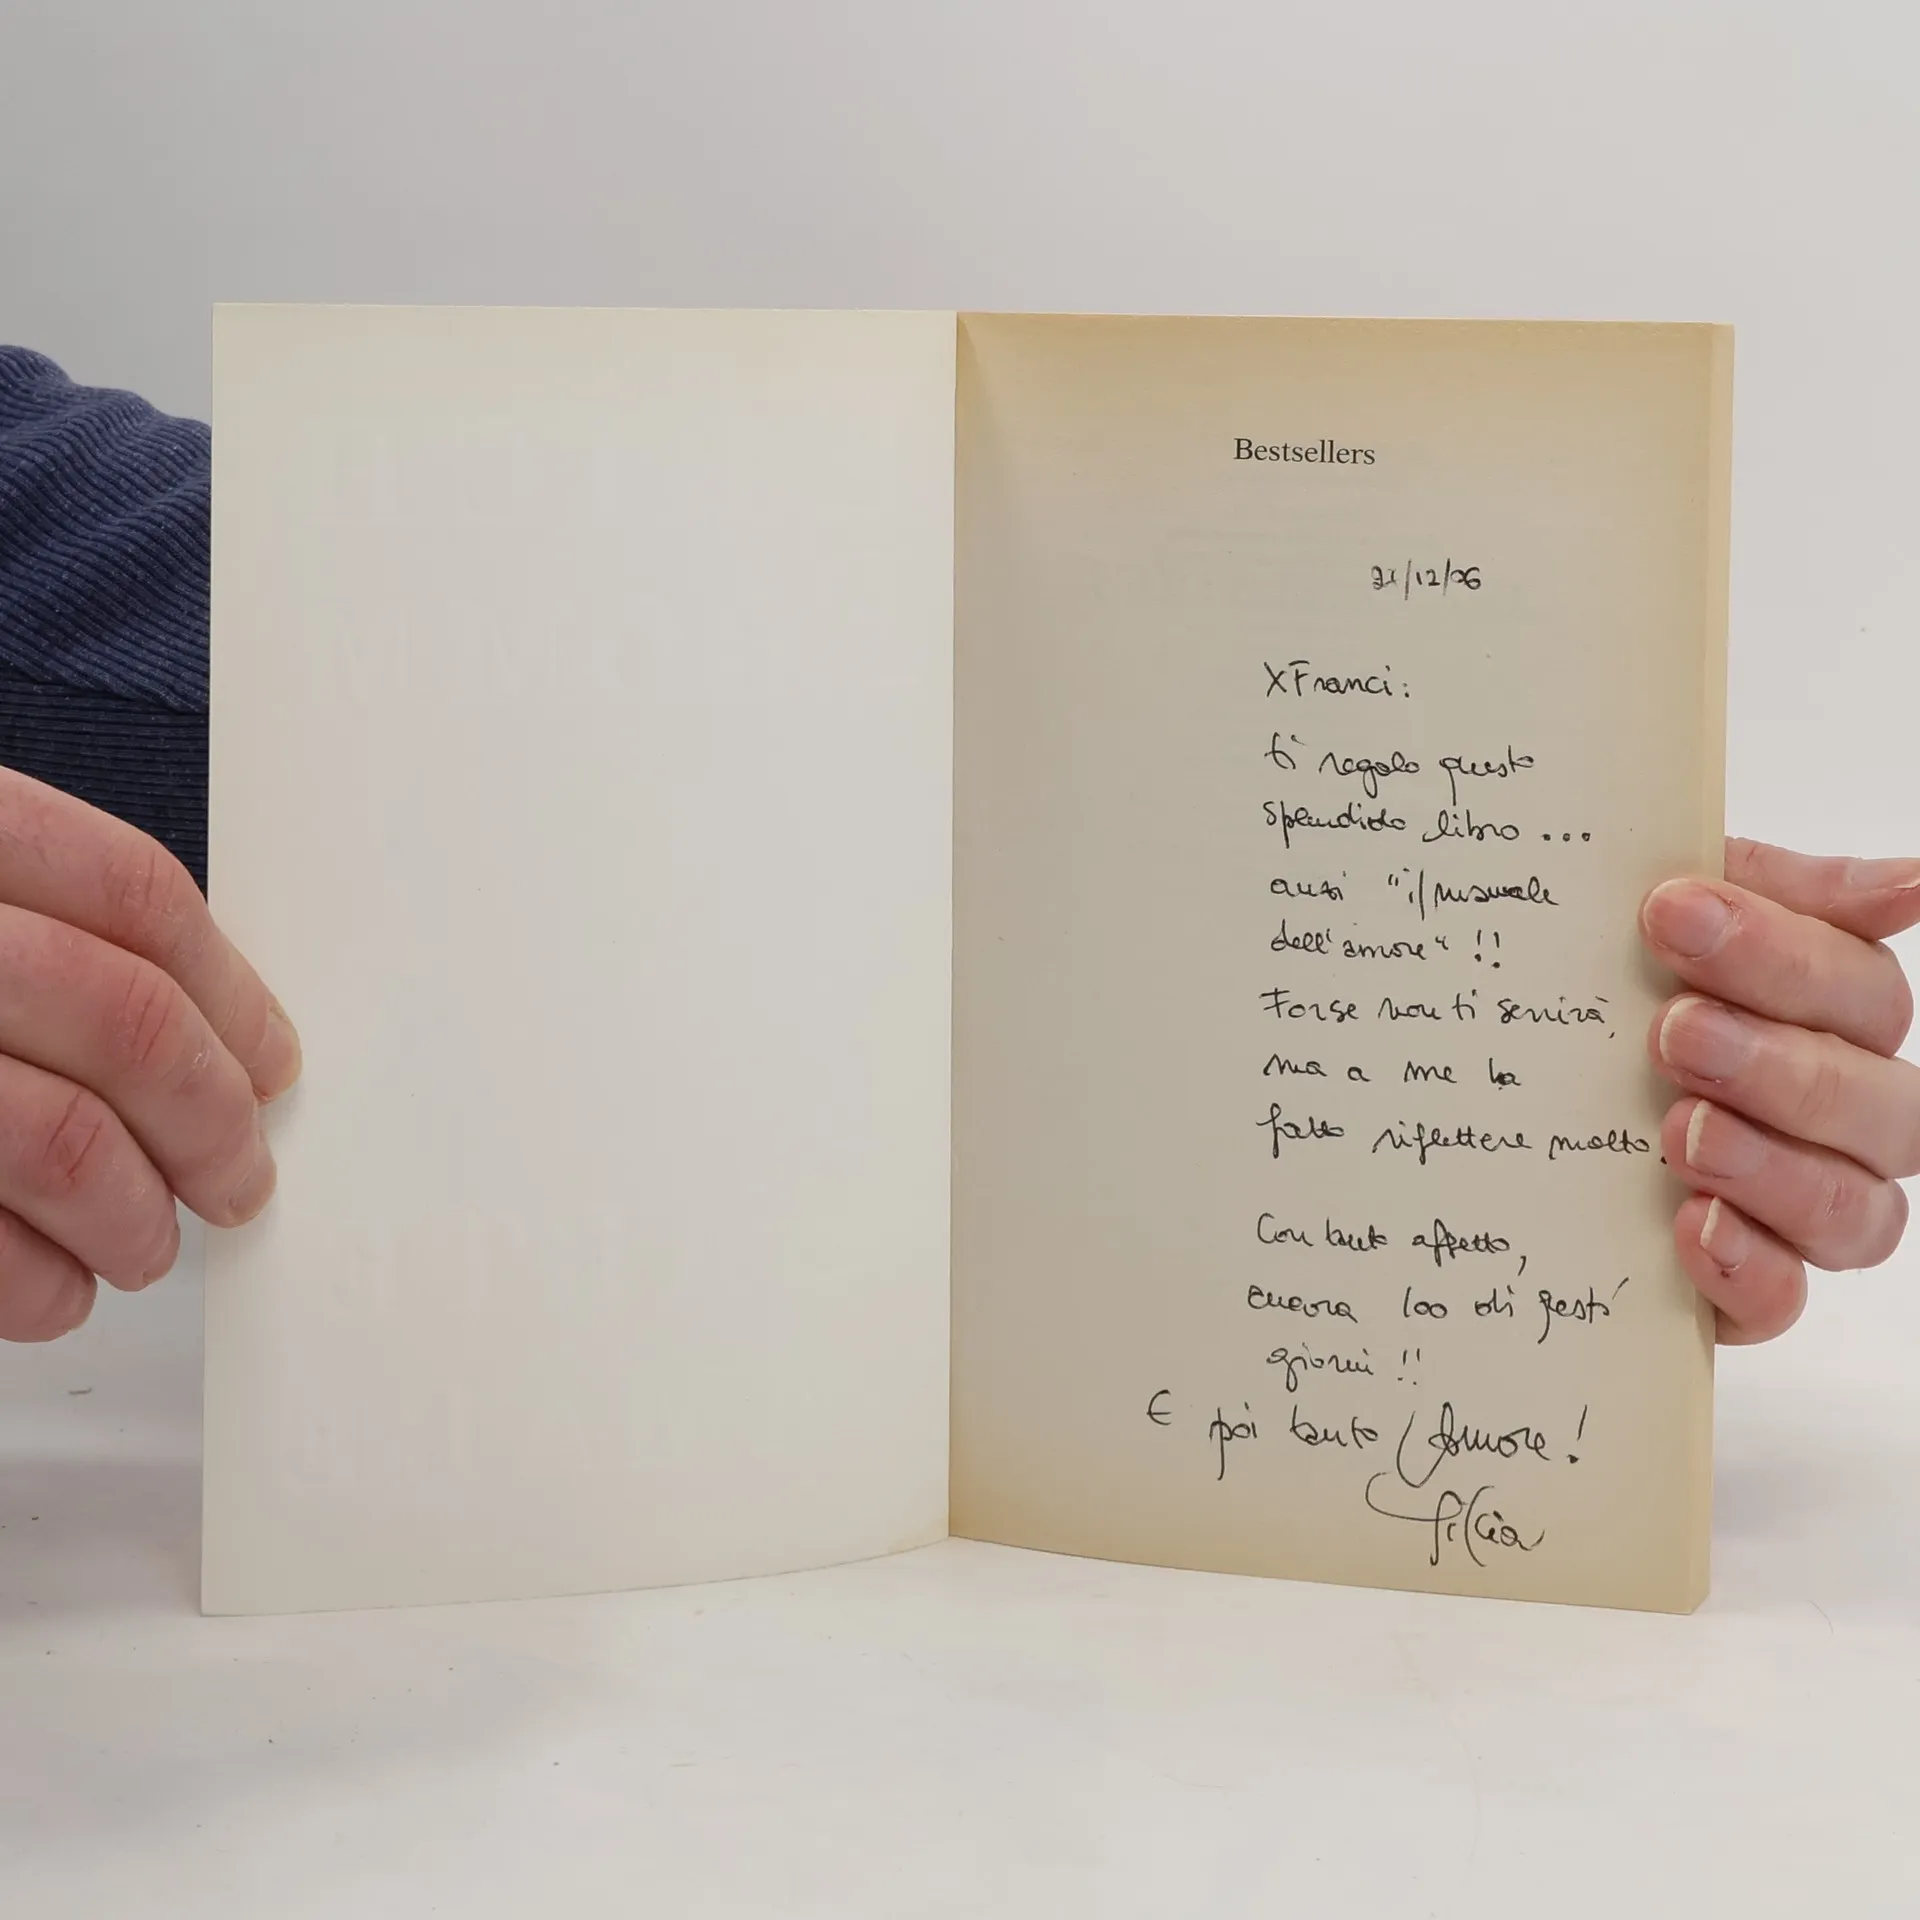 Bestsellers
21/12/06
XFranci:
ti regalo questo
splendido libro ...
anzi "il manuale
dell'amore" !!
Forse non ti servirà,
ma a me ha
fatto riflettere molto.
Con tanto affetto,
ancora 100 di questi
giorni !!
E poi tanto Amore!